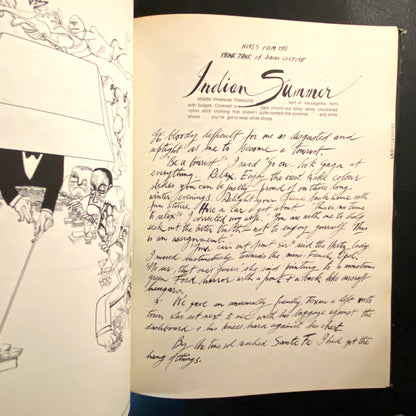 NOTES FROM THE
THINK TANK OF CULTURE
Indian Summer
Middle American Polwound sort of sausagelike form,
with bulges. Covered in dark cherry-red shiny white checkered
nylon slick clothing that doesn't quite contain the contents . . . and white
shoes . . . you've got to wear white shoes.
It's bloody difficult for me as disgusted and
uptight as me to become a tourist.
"Be a tourist" I said "go on look gaga at
everything. Relax. Enjoy the view take colour
slides you can be proud of on those long
winter evenings. Delight your friends back home with
fun stories. Hire a car & get about. This is no time
to relax" I corrected my wife. "You are with me to help
seek out the bitter truth – not to enjoy yourself this
is an assignment."
"Your car's out front sir" said the Hertz lady.
I moved instinctively towards the mini-French Opel.
"No sir, that one's yours" she said pointing to a monstrous
green Ford horror with a front & a back like aircraft
hangars.
& We gave an immensely friendly Texan a lift into
town who sat next to me with his luggage against the
dashboard & his knees hard against his chest.
By the time we reached Santa Fe I had got the
hang of things.